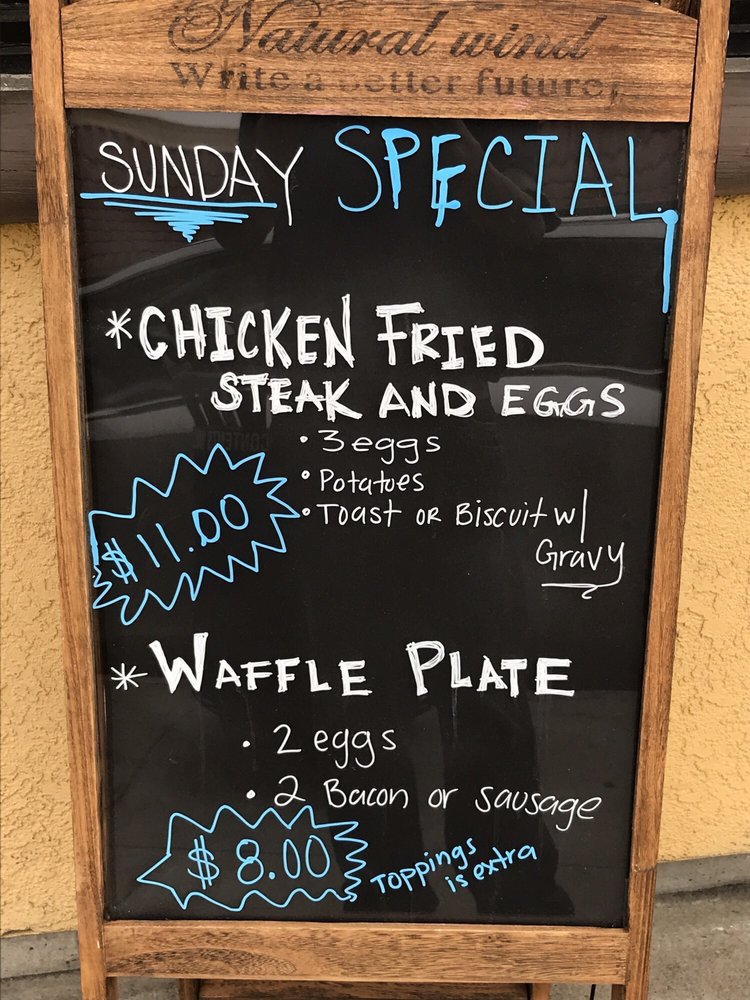 Natural wind
Write a better future
SUNDAY SPECIAL
*CHICKEN FRIED
STEAK AND EGGS
• 3 eggs
• Potatoes
• Toast or Biscuit w/
Gravy
$11.00
* WAFFLE PLATE
• 2 eggs
• 2 Bacon or sausage
$8.00
Toppings
is extra